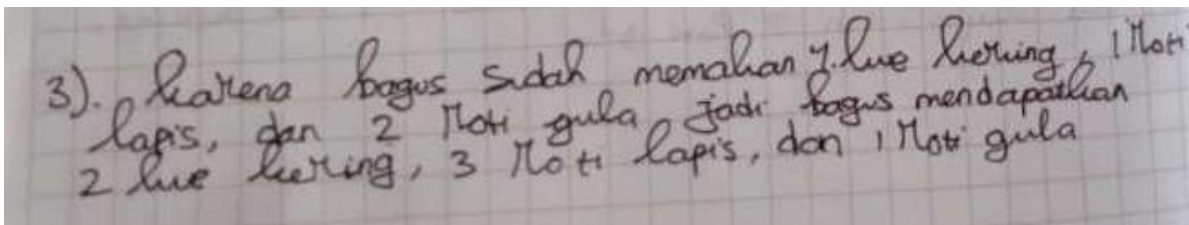 3). karena bagus sudah memakan 7 kue kering, 1 Roti
lapis, dan 2 Roti gula jadi bagus mendapatkan
2 kue kering, 3 Roti lapis, dan 1 Roti gula